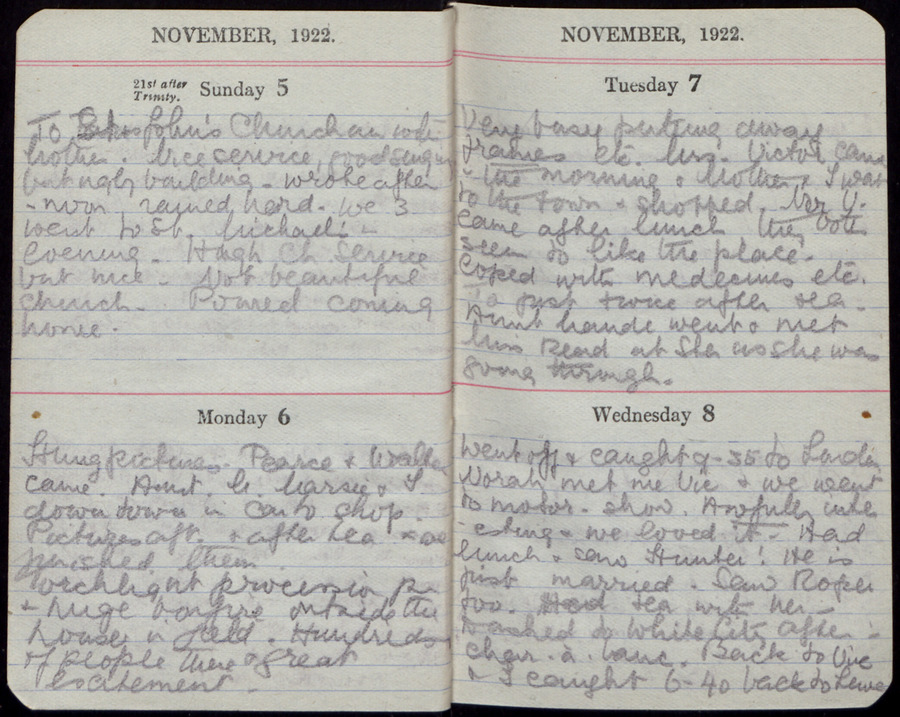 NOVEMBER, 1922.
21st after
Trinity. Sunday 5
To John's Church am with
Mother. Nice service, good singing
but ugly building - wrote after
-noon rained hard. We 3
went to St. Michael's in
evening - High Ch Service
but nice - Not beautiful
church. Poured coming
home.
Monday 6
Hung pictures. Pearce & Walter
came. Aunt. & I
down town in car to shop.
Pictures aft. & after tea & we
finished them.
Torchlight procession
& huge bonfire outside the
houses in field. Hundreds
of people there & great
excitement -
NOVEMBER, 1922.
Tuesday 7
Very busy putting away
frames etc. Mrs. Victor came
in the morning & Mother & I went
to the town & shopped.
came after lunch they both
seem to like the place.
Coped with medecines etc.
To just twice after tea -
Aunt Maude went & met
Miss Read at Stn as she was
going through.
Wednesday 8
Went off & caught 9-35 to London
Norah met me Vic & we went
to motor - show. Awfully inter
-esting - we loved it - Had
lunch & saw Hunter! He is
just married. Saw Roper
too. Had tea with her -
Dashed to White City after in
char. à. banc. Back to Vic
& I caught 6-40 back to Lewes